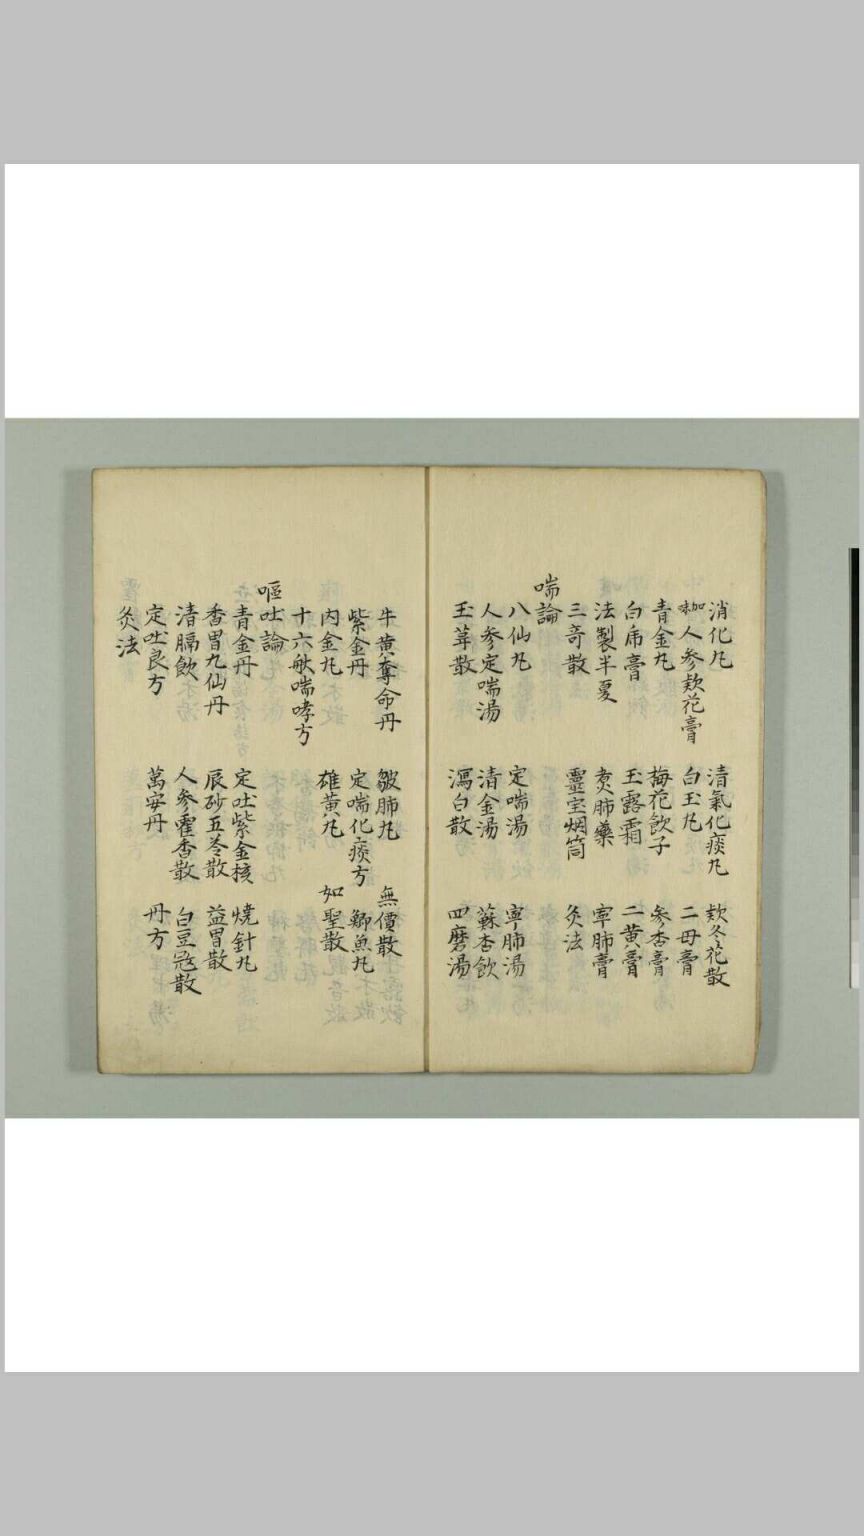 消化丸 清氣化痰丸 欵冬花散
加味人参欵花膏 白玉丸 二母膏
青金丸 梅花飲子 参杏膏
白虎膏 玉露霜 二黄膏
法製半夏 煑肺藥 寧肺膏
三奇散 靈宝烟筒 灸法
喘論
八仙丸 定喘湯 寧肺湯
人参定喘湯 清金湯 蘇杏飲
玉華散 瀉白散 四磨湯
牛黄奪命丹 皺肺丸 無價散
紫金丹 定喘化痰方 鯽魚丸
内金丸 雄黄丸 如聖散
十六般喘哮方
嘔吐論
青金丹 定吐紫金核 燒針丸
香胃九仙丹 辰砂五苓散 益胃散
清膈飲 人参霍香散 白豆蔻散
定吐良方 萬安丹 丹方
灸法